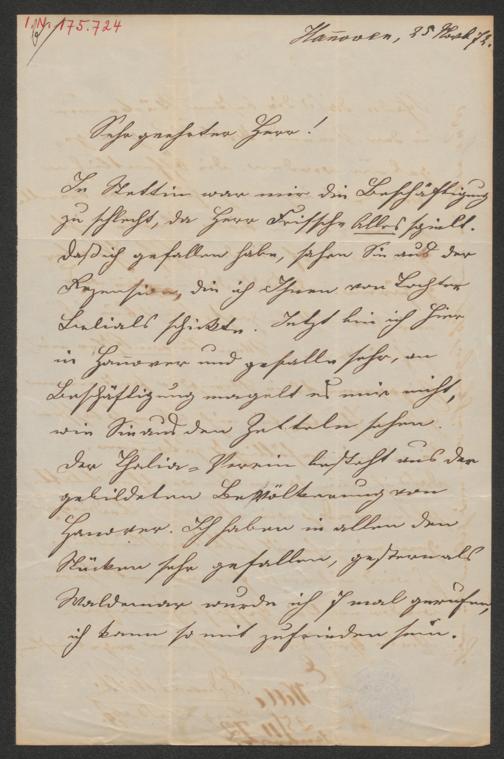 I.N. 175.724
Hannover, 25 Nov. 72.
Sehr geehrter Herr!
In Stettin war mir die Beschäftigung
zu schlecht, da Herr Fritsche Alles spielt.
Daß ich gefallen habe, sahen Sie aus der
Rezension, die ich Ihnen von Tochter
Belials schickte. Jetzt bin ich hier
in Hannover und gefalle sehr, an
Beschäftigung magelt es mir nicht,
wie Sie aus den Zetteln sehen.
Der Thalia-Verein besteht aus der
gebildeten Bevölkerung von
Hanover. Ich habe in allen den
Stücken sehr gefallen, gestern als
Waldemar wurde ich 7 mal gerufen,
ich kann so mit zufrieden sein.